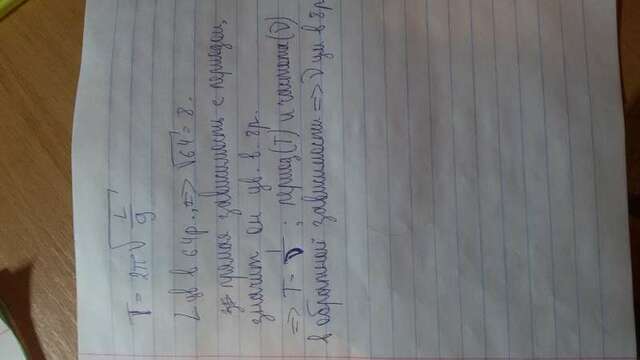 T = 2π√L/g
L ув. в 64 р., => √64 = 8.
=> прямая зависимость с периодом,
значит он ув. в 8 р.
=> T = 1/ν ; период (T) и частота (ν)
в обратной зависимости => ν ум. в 8 р.